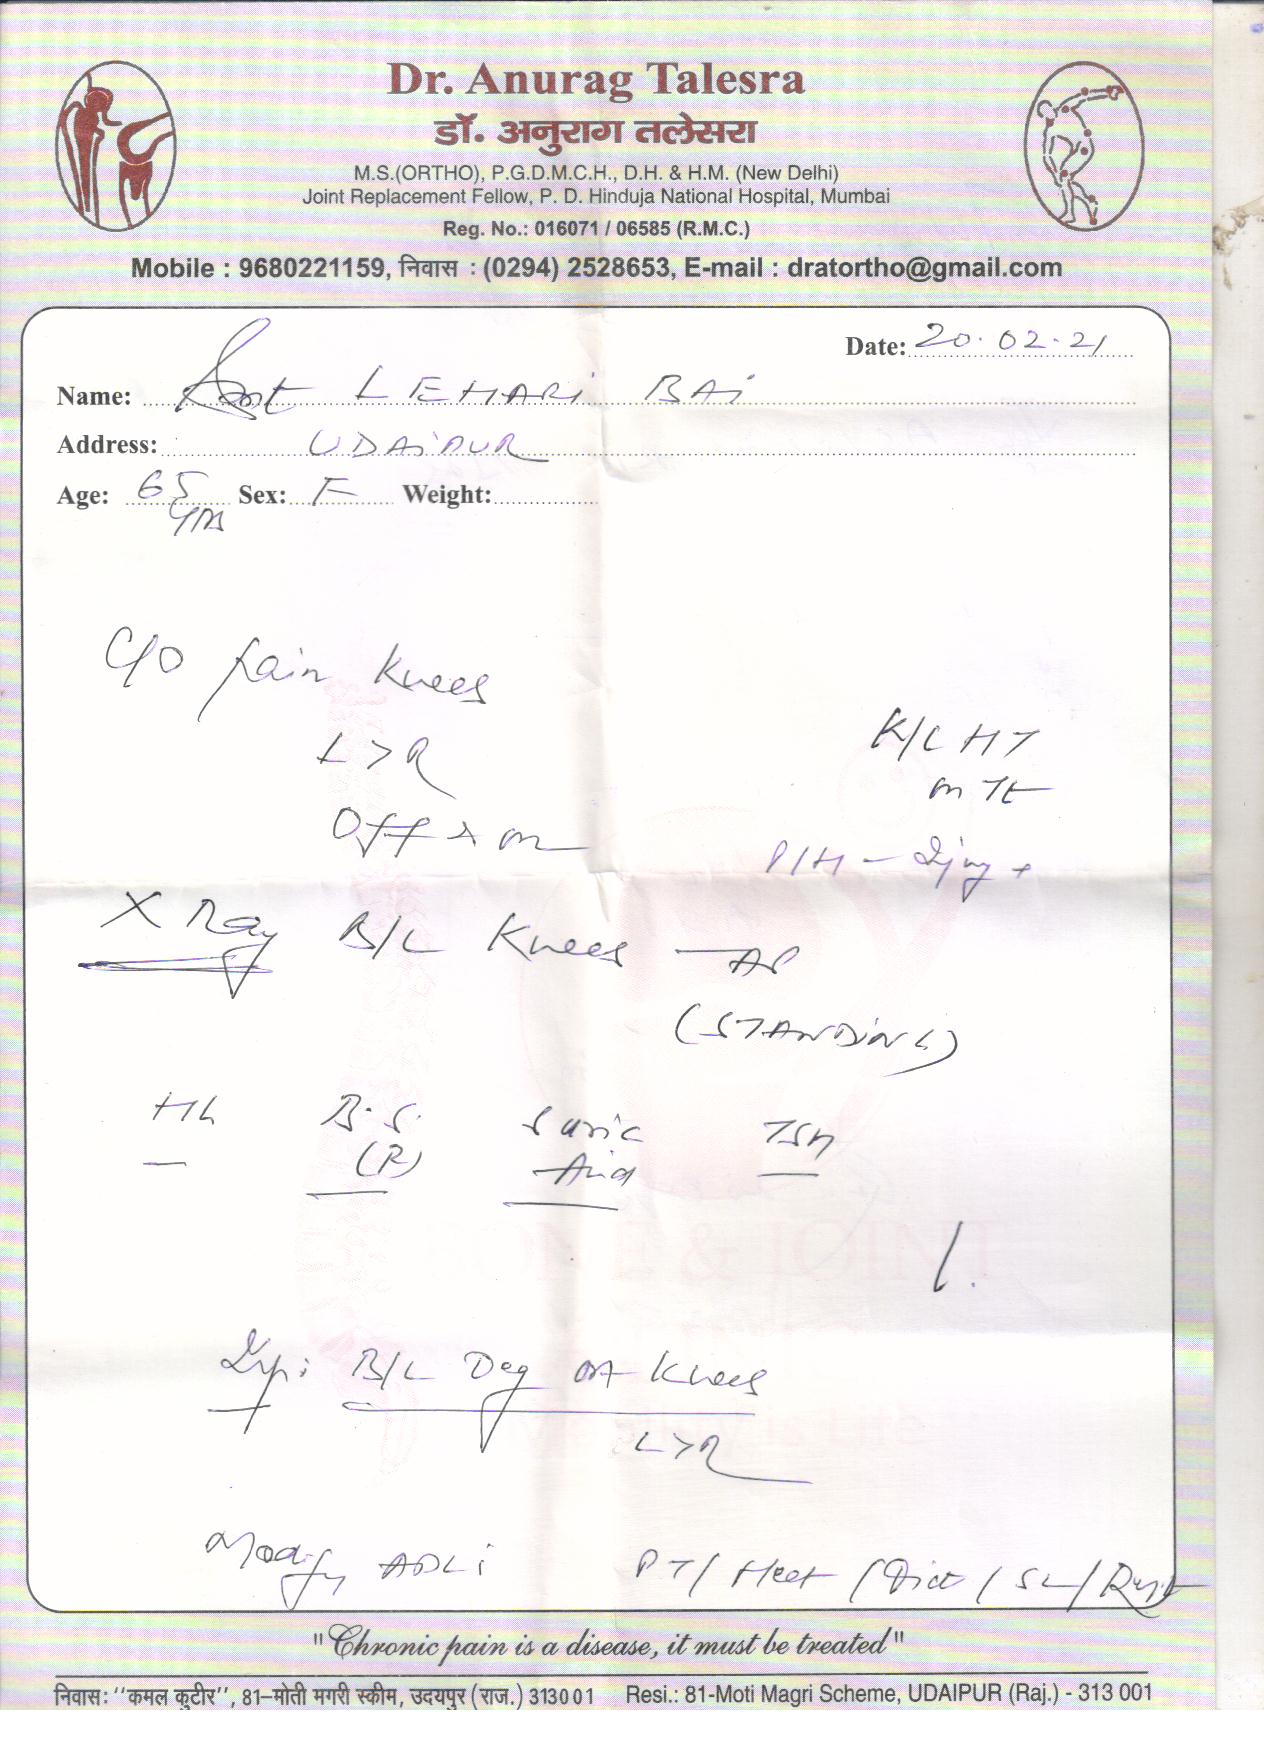 Dr. Anurag Talesra
डॉ. अनुराग तलेसरा
M.S.(ORTHO), P.G.D.M.C.H., D.H. & H.M. (New Delhi)
Joint Replacement Fellow, P. D. Hinduja National Hospital, Mumbai
Reg. No.: 016071 / 06585 (R.M.C.)
Mobile : 9680221159, निवास : (0294) 2528653, E-mail : dratortho@gmail.com
Date: 20.02.21
Name: Smt LEHARi BAi
Address: UDAiPUR
Age: 65 yrs Sex: F Weight:
C/O Pain Knees
L > R
Off & on
K/C HT
on Tt
P/H - Injury +
X Ray B/L Knees - AP
(STANDiNG)
Hb B.S. (R) S uric Acid TSH
Imp: B/L Deg OA Knees
L > R
Modify ADL PT / Heat / Diet / SL /
"Chronic pain is a disease, it must be treated"
निवास: ''कमल कुटीर'', 81–मोती मगरी स्कीम, उदयपुर (राज.) 313001 Resi.: 81-Moti Magri Scheme, UDAIPUR (Raj.) - 313 001